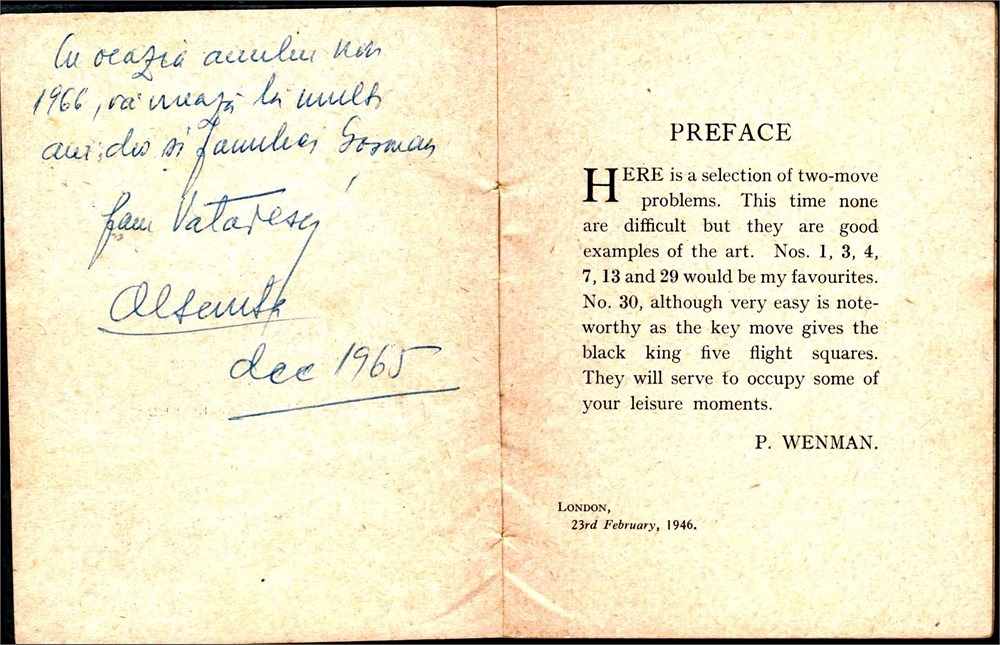 Cu ocazia anului nou
1966, vă urează la mulți
ani, dvs și familiei
fam
dec 1965
PREFACE
HERE is a selection of two-move
problems. This time none
are difficult but they are good
examples of the art. Nos. 1, 3, 4,
7, 13 and 29 would be my favourites.
No. 30, although very easy is note-
worthy as the key move gives the
black king five flight squares.
They will serve to occupy some of
your leisure moments.
P. WENMAN.
LONDON,
23rd February, 1946.